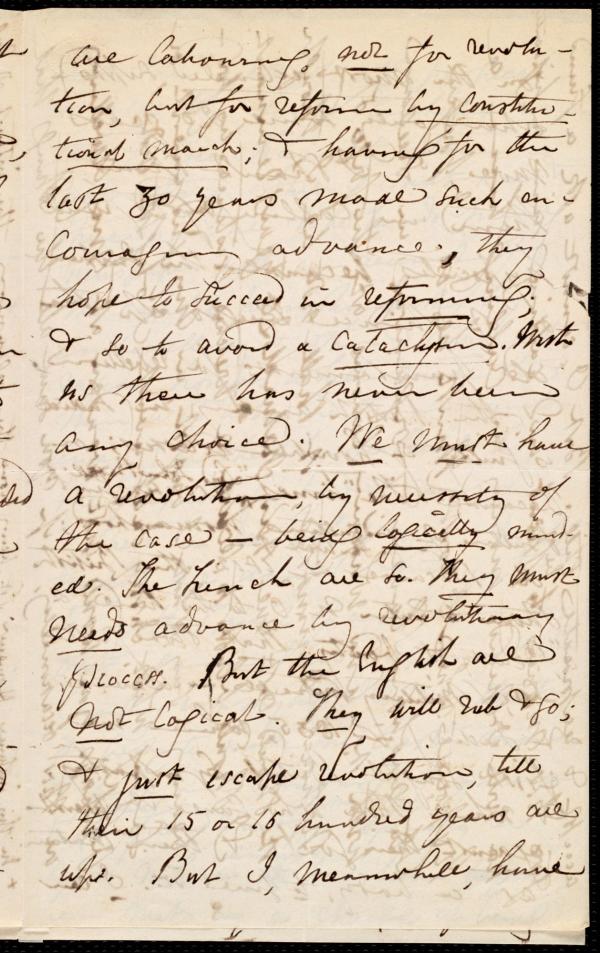 are labouring, not for revolu-
tion, but for reform by constitu-
tional march; & having for the
last 30 years made such en-
couraging advance, they
hope to succeed in reforming;
& so to avoid a cataclysm. With
us there has never been
any choice. We must have
a revolution, by necessity of
the case – being logically mind-
ed. The French are so. They must
needs advance by revolutionary
process. But the English are
not logical. They will rub & go;
& just escape revolution, till
their 15 or 16 hundred years are
up. But I, meanwhile, have